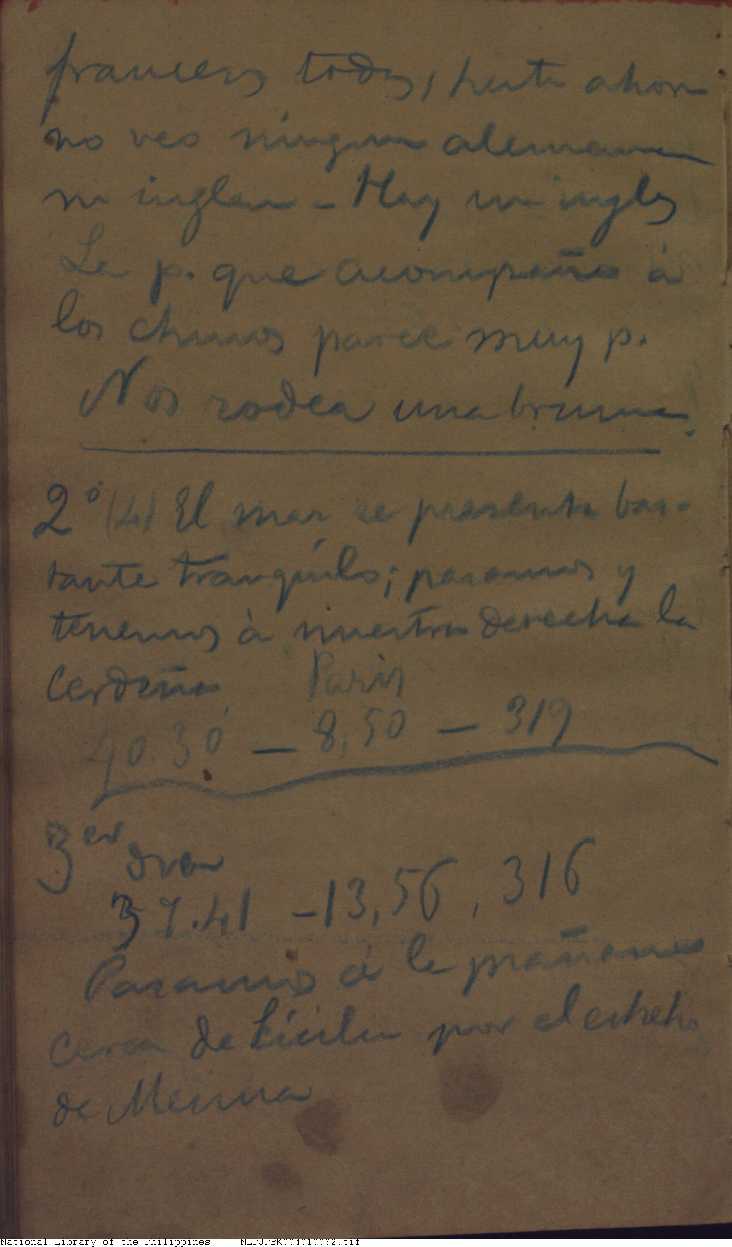 franceses todos, hasta ahora
no veo ningun aleman
ni ingles - Hay un ingles
La p. que acompaña á
los chinos parece muy p.
Nos rodea una bruma.
2º (4) El mar se presenta bas-
tante tranquilo; pasamos y
tenemos á nuestra derecha la
Cerdeña Paris
40.30 — 8,50 — 319
3er dia
37.41 - 13,56, 316
Pasamos á la mañana
cerca de Sicilia por el estrecho
de Messina
National Library of the Philippines